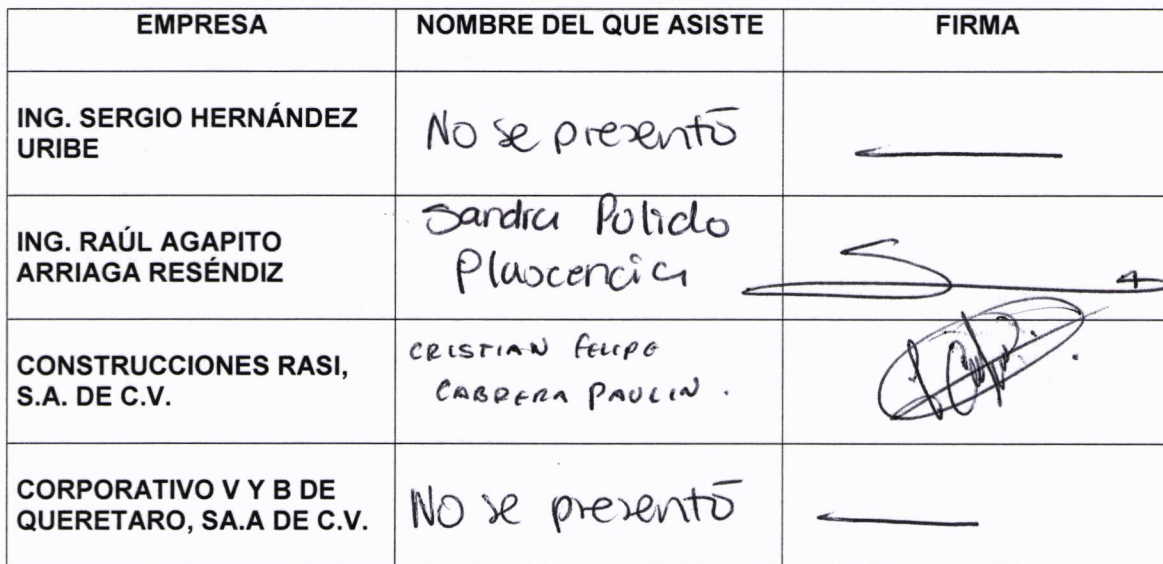 EMPRESA NOMBRE DEL QUE ASISTE FIRMA
ING. SERGIO HERNÁNDEZ
URIBE
No se presentó
ING. RAÚL AGAPITO
ARRIAGA RESÉNDIZ
Sandra Pulido
Plascencia
CONSTRUCCIONES RASI,
S.A. DE C.V.
CRISTIAN FELIPE
CABRERA PAULIN.
CORPORATIVO V Y B DE
QUERETARO, SA.A DE C.V.
No se presentó